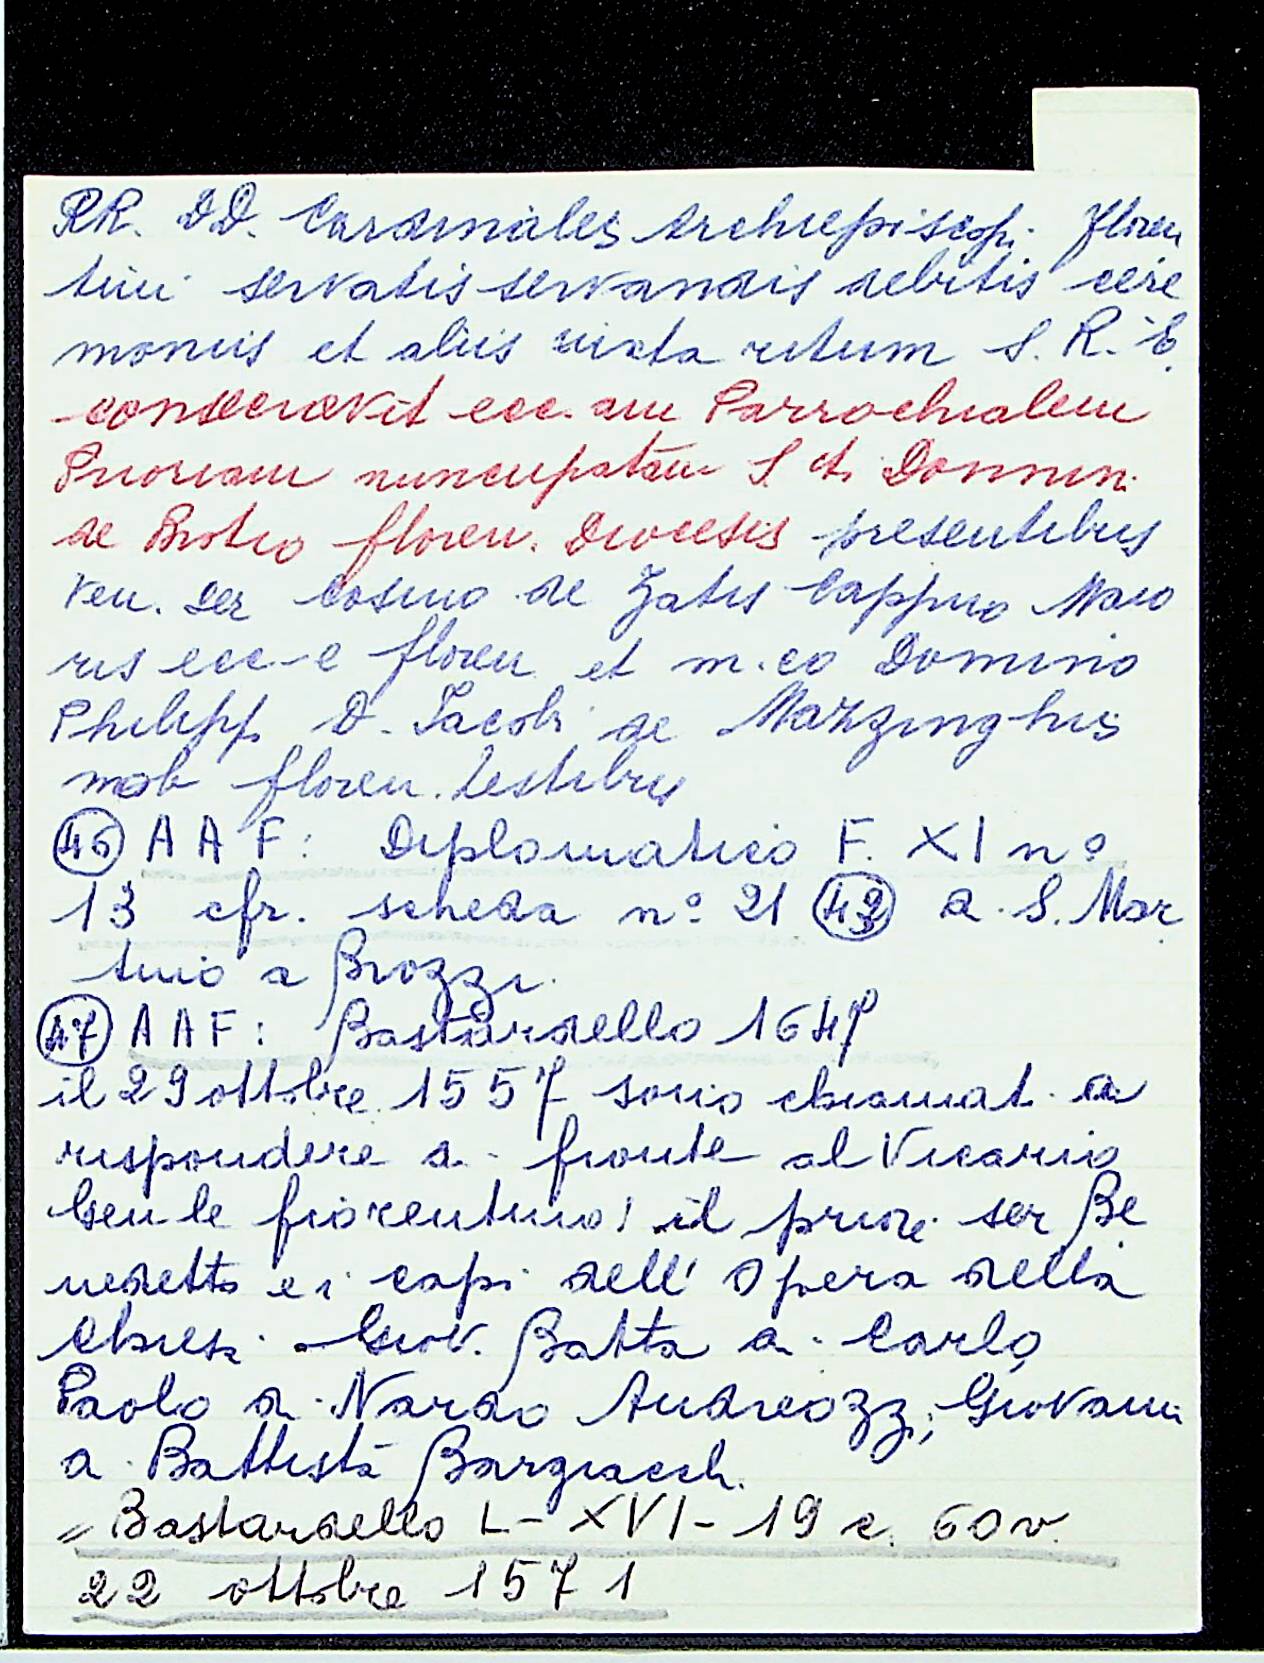 RR. DD. Cardinales Archiepiscopi Floren
tini servatis servandis debitis cere
moniis et aliis iuxta ritum S. R. E.
consecravit ecc.am Parrochialem
Prioriam nuncupatam S.ti Donnini
de Brotio floren. Diocesis presentibus
Ven. Ser Cosimo de Zatis Cappno Maio
ris ecc-e floren et m.co Domino
Philipp. D. Iacobi de Marzinghis
nob floren. testibus
46 AAF: Diplomatico F. XI n°
13 cfr. scheda n° 21 42 di S. Mar
tino a Brozzi.
47 AAF: Bastardello 164
il 29 ottobre 1557 sono chiamati a
rispondere di fronte al Vicario
Gen.le fiorentino: il priore ser Be
nedetto e i capi dell'Opera della
Chiesa. Giov. Batta di Carlo,
Paolo di Nardo Andreozzi, Giovanni
di Battista Bargiacchi.
= Bastardello L - XVI - 19 c. 60v.
22 ottobre 1571